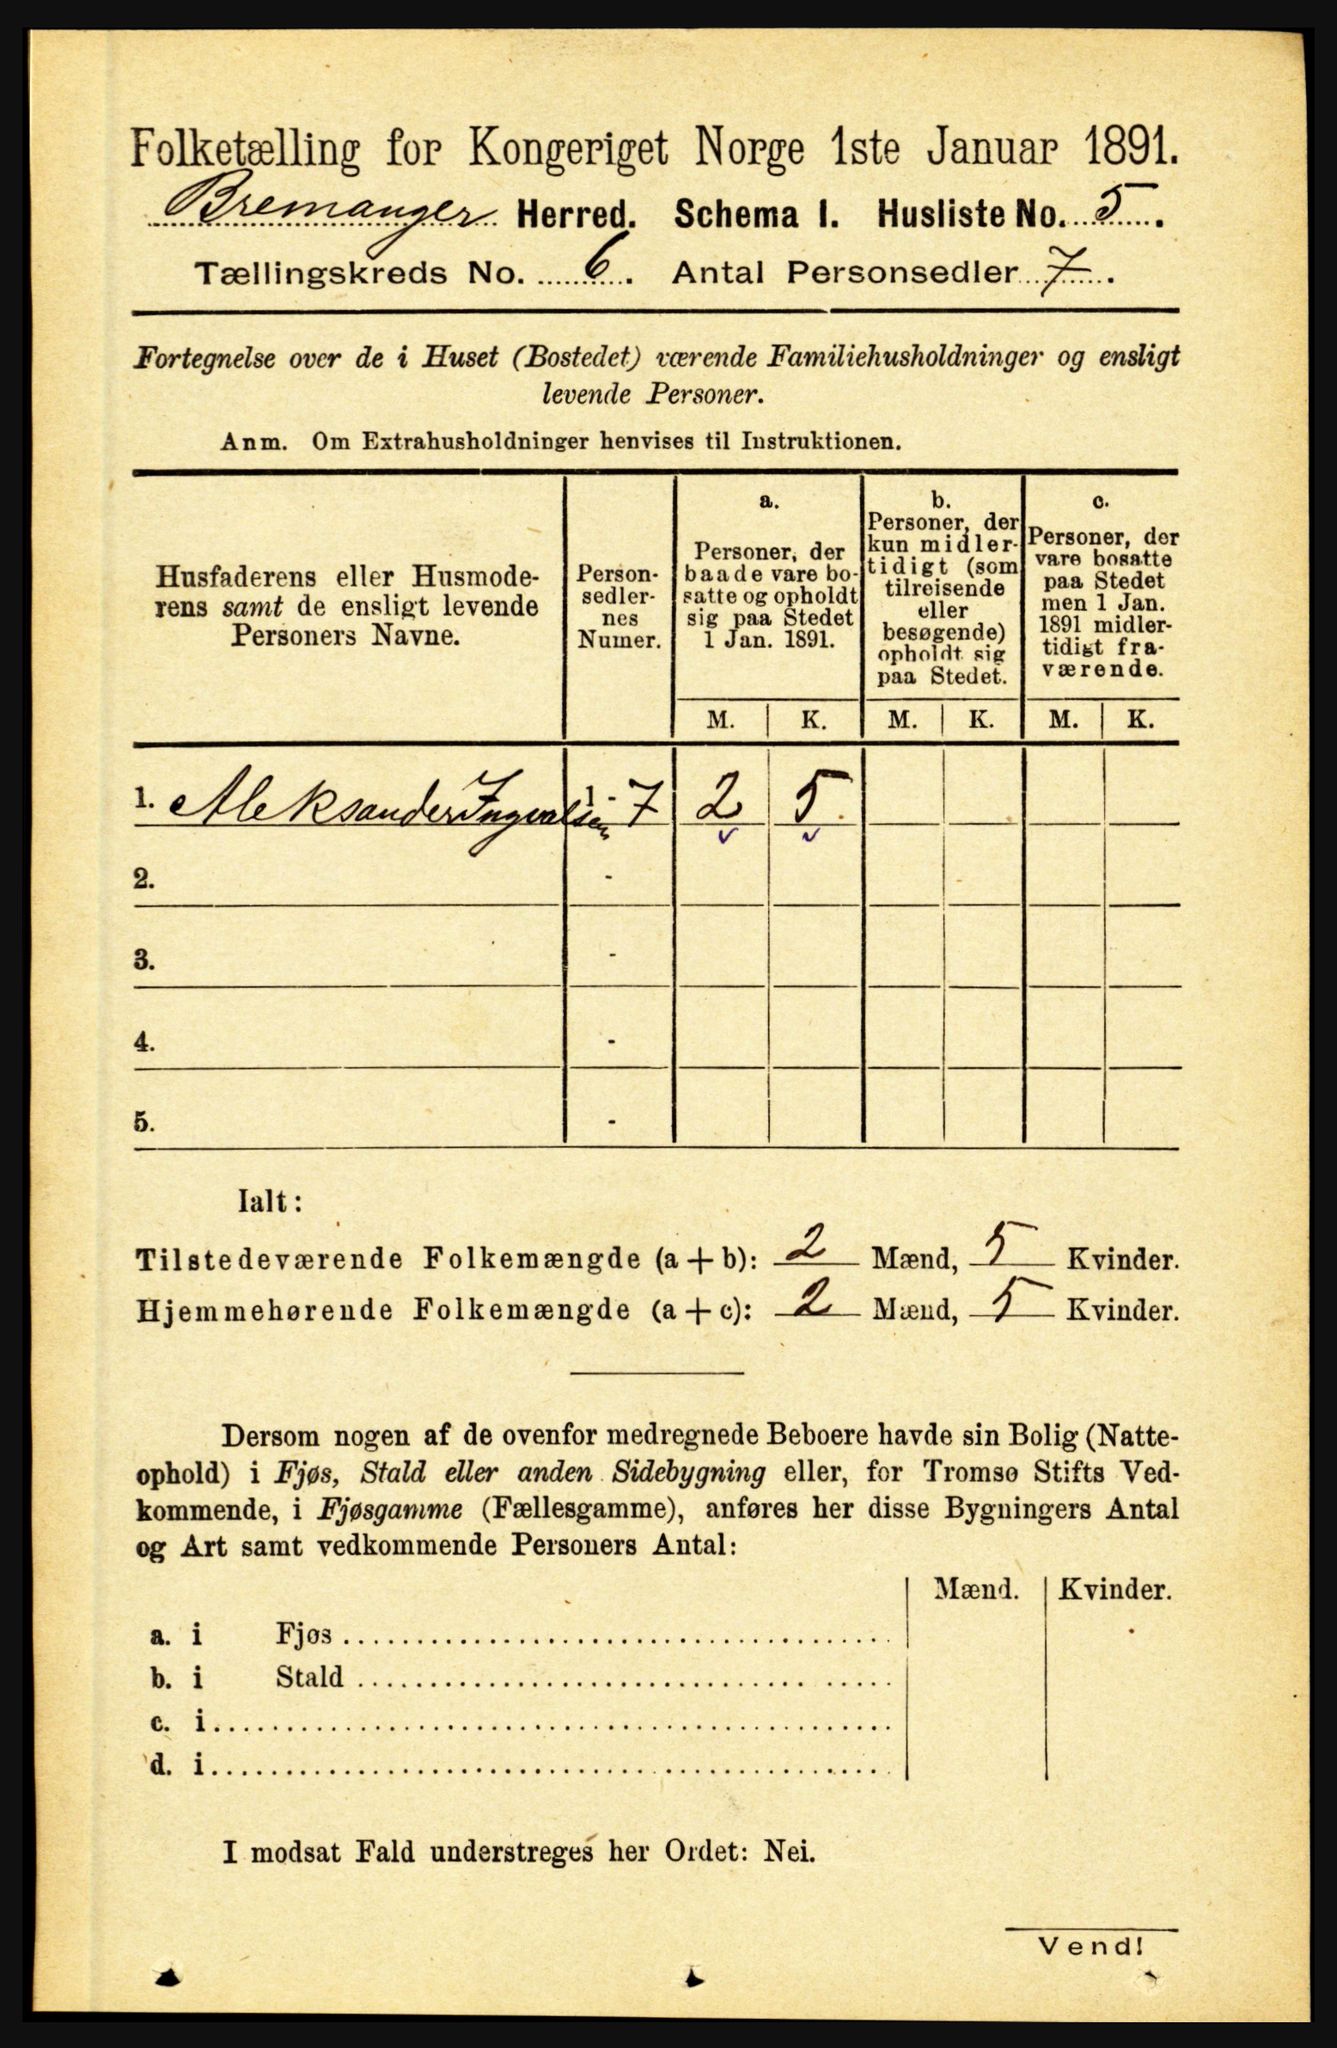 Folketælling for Kongeriget Norge 1ste Januar 1891.
Bremanger Herred. Schema I. Husliste No. 5.
Tællingskreds No. 6. Antal Personsedler 7.
Fortegnelse over de i Huset (Bostedet) værende Familiehusholdninger og ensligt
levende Personer.
Anm. Om Extrahusholdninger henvises til Instruktionen.
Husfaderens eller Husmode-
rens samt de ensligt levende
Personers Navne.
Person-
sedler-
nes
Numer.
a.
Personer, der
baade vare bo-
satte og opholdt
sig paa Stedet
1 Jan. 1891.
b.
Personer, der
kun midler-
tidigt (som
tilreisende
eller
besøgende)
opholdt sig
paa Stedet.
c.
Personer, der
vare bosatte
paa Stedet
men 1 Jan.
1891 midler-
tidigt fra-
værende.
M. K. M. K. M. K.
1. Aleksander Ingvalsen 1 - 7 2 5
2. -
3. -
4. -
5. -
Ialt:
Tilstedeværende Folkemængde (a + b): 2 Mænd, 5 Kvinder.
Hjemmehørende Folkemængde (a + c): 2 Mænd, 5 Kvinder.
Dersom nogen af de ovenfor medregnede Beboere havde sin Bolig (Natte-
ophold) i Fjøs, Stald eller anden Sidebygning eller, for Tromsø Stifts Ved-
kommende, i Fjøsgamme (Fællesgamme), anføres her disse Bygningers Antal
og Art samt vedkommende Personers Antal:
Mænd. Kvinder.
a. i Fjøs
b. i Stald
c. i
d. i
I modsat Fald understreges her Ordet: Nei.
Vend!